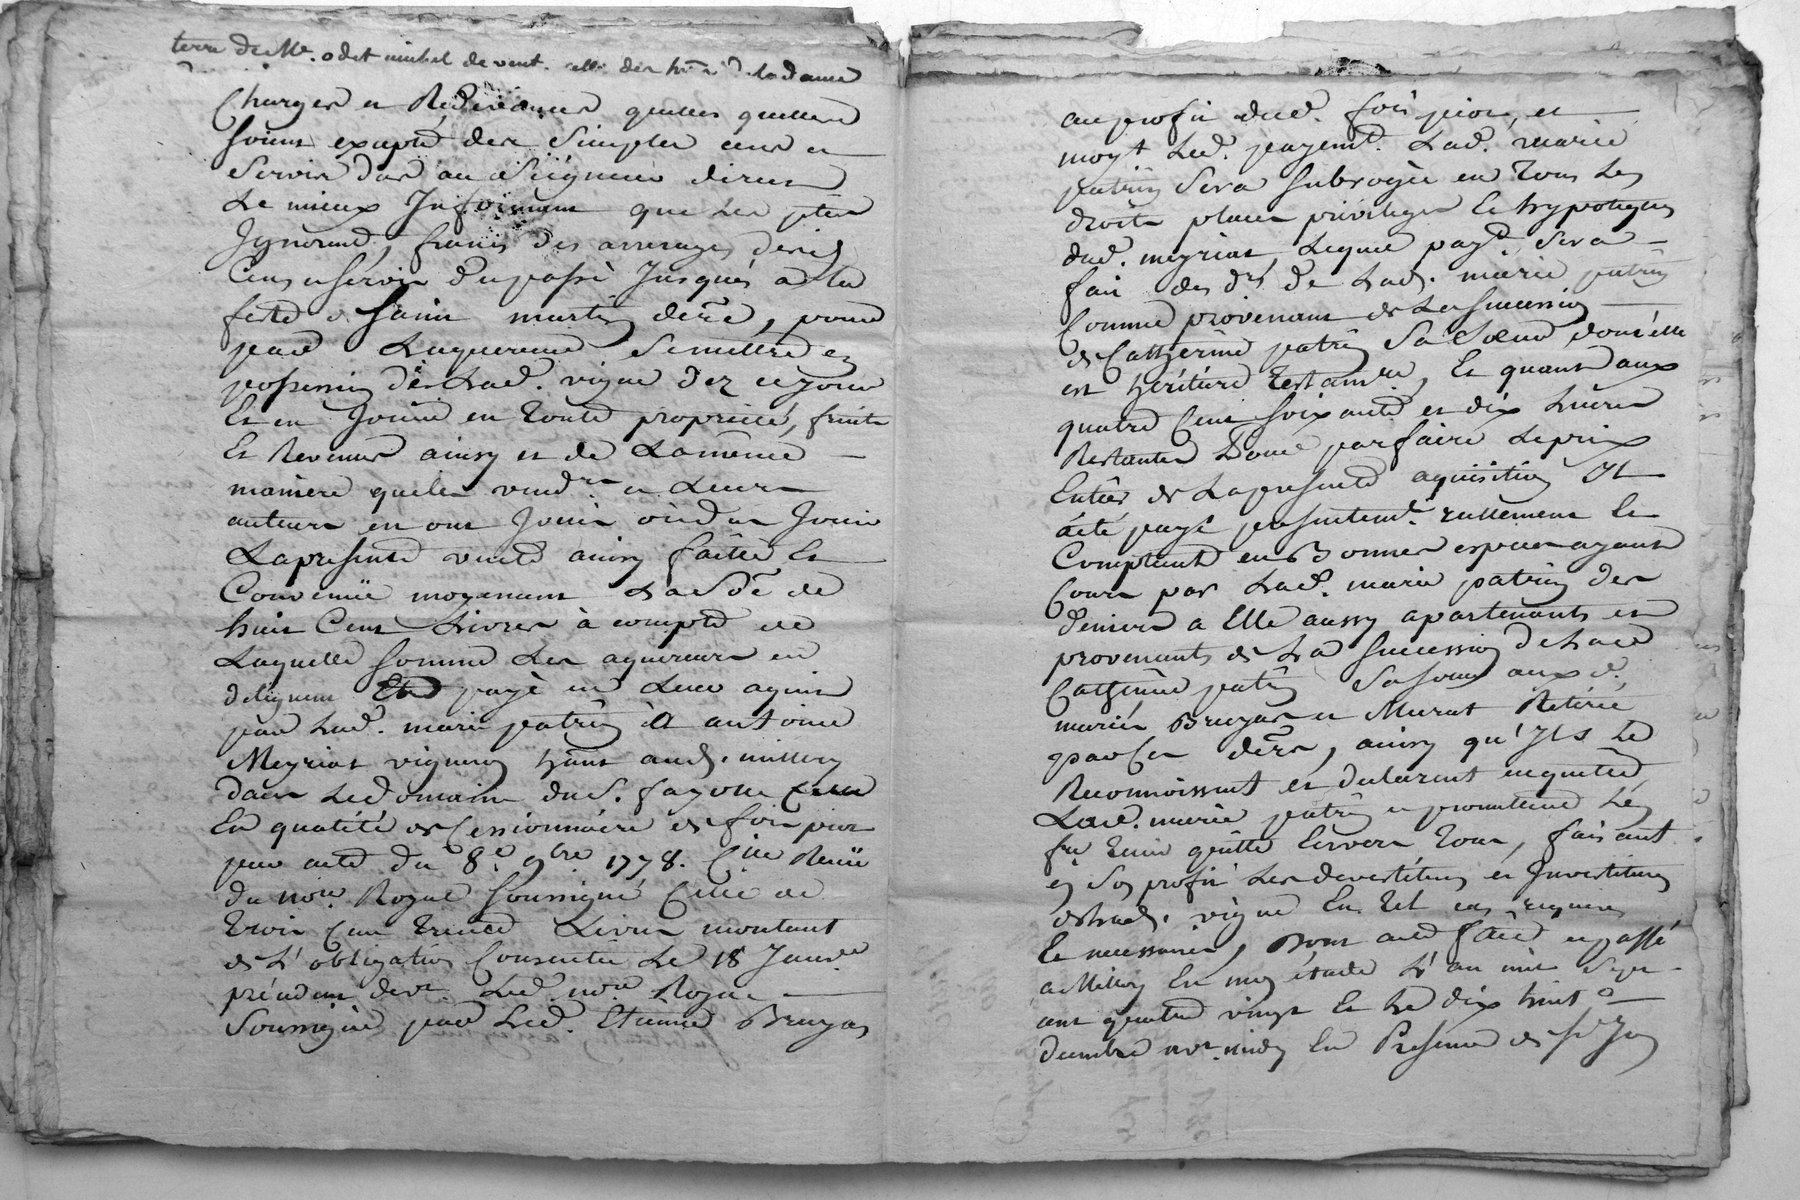 terre de Me. odet michel de vent. celle des hrs de la dame
Charges et Redevances quelles quelles
soient exepté des simples cens et
servis dus au Seigneur direct
Le mieux Informant que les ptes
Ignorent, francs des arrerages desd
Cens et servis du passé Jusques a la
feste de saint martin dere, pour
par Laquereuse se mettre en
possession de Lad. vigne dez ce jour
Et en Jouir en toute proprieté, fruits
Et Revenus ainsy et de La même
maniere que les vendrs et Leurs
auteurs en ont Joui ou dû en Jouir
La presente vente ainsy faitte Et
Convenüe moyenant La Sôe de
huit Cent Livres à compte de
Laquelle somme Les aquereurs en
delleguent Etre payé en Leur aquit
par Lad. marie patrin à antoine
Meyriat vigneron hânt aud. millery
dans Le Domaine du S. fayolle
En qualité de Cessionnaire de fois piot
par acte du 8e. 9bre 1778. Cllé Reçu
du nore Rogue soussigné Celle de
trois Cent trente Livres montant
de L'obligation Consentie Le 18 Janvier
précédent devt Led. nore Rogue
soussigné par Led. Etienne Bruyas
au profit dud. fois piot, et
moyt Led. payemt. Lad. marie
patrin Sera subrogée en tous Les
droits places privileges Et hypoteques
dud. meyriat, Lequel payt Sera
fait des drs de Lad. marie patrin
Comme provenant de La succession
de Catherine patrin Sa Sœur dont elle
est héritière testamre, Et quant aux
quatre Cent soixante et dix Livres
Restantes Pour parfaire Le prix
Entier de La presente aquisition Il a
été payé presentemt. réellement Et
Comptant en Bonnes especes ayant
Cours par Lad. marie patrin des
deniers a Elle aussy apartenants et
provenants de La Succession de Lad
Catherine patrin Sa sœur aux d.
mariés Bruyas et Murat Retiré
par Ces derrs, ainsy qu'Ils Le
Reconnoissent et declarent en quittent
Lad. marie patrin et promettent Len
fre tenir quitte Envers tous, faisant
en Son profit Les devestitures et Investitures
de Lad. vigne En tel cas requises
Et necessaires, Dont acte fait et passé
a Millery En mon étude L'an mil Sept
cent quatre vingt Et Le dix huit
decembre avt. midy En Presence de Sr Jn